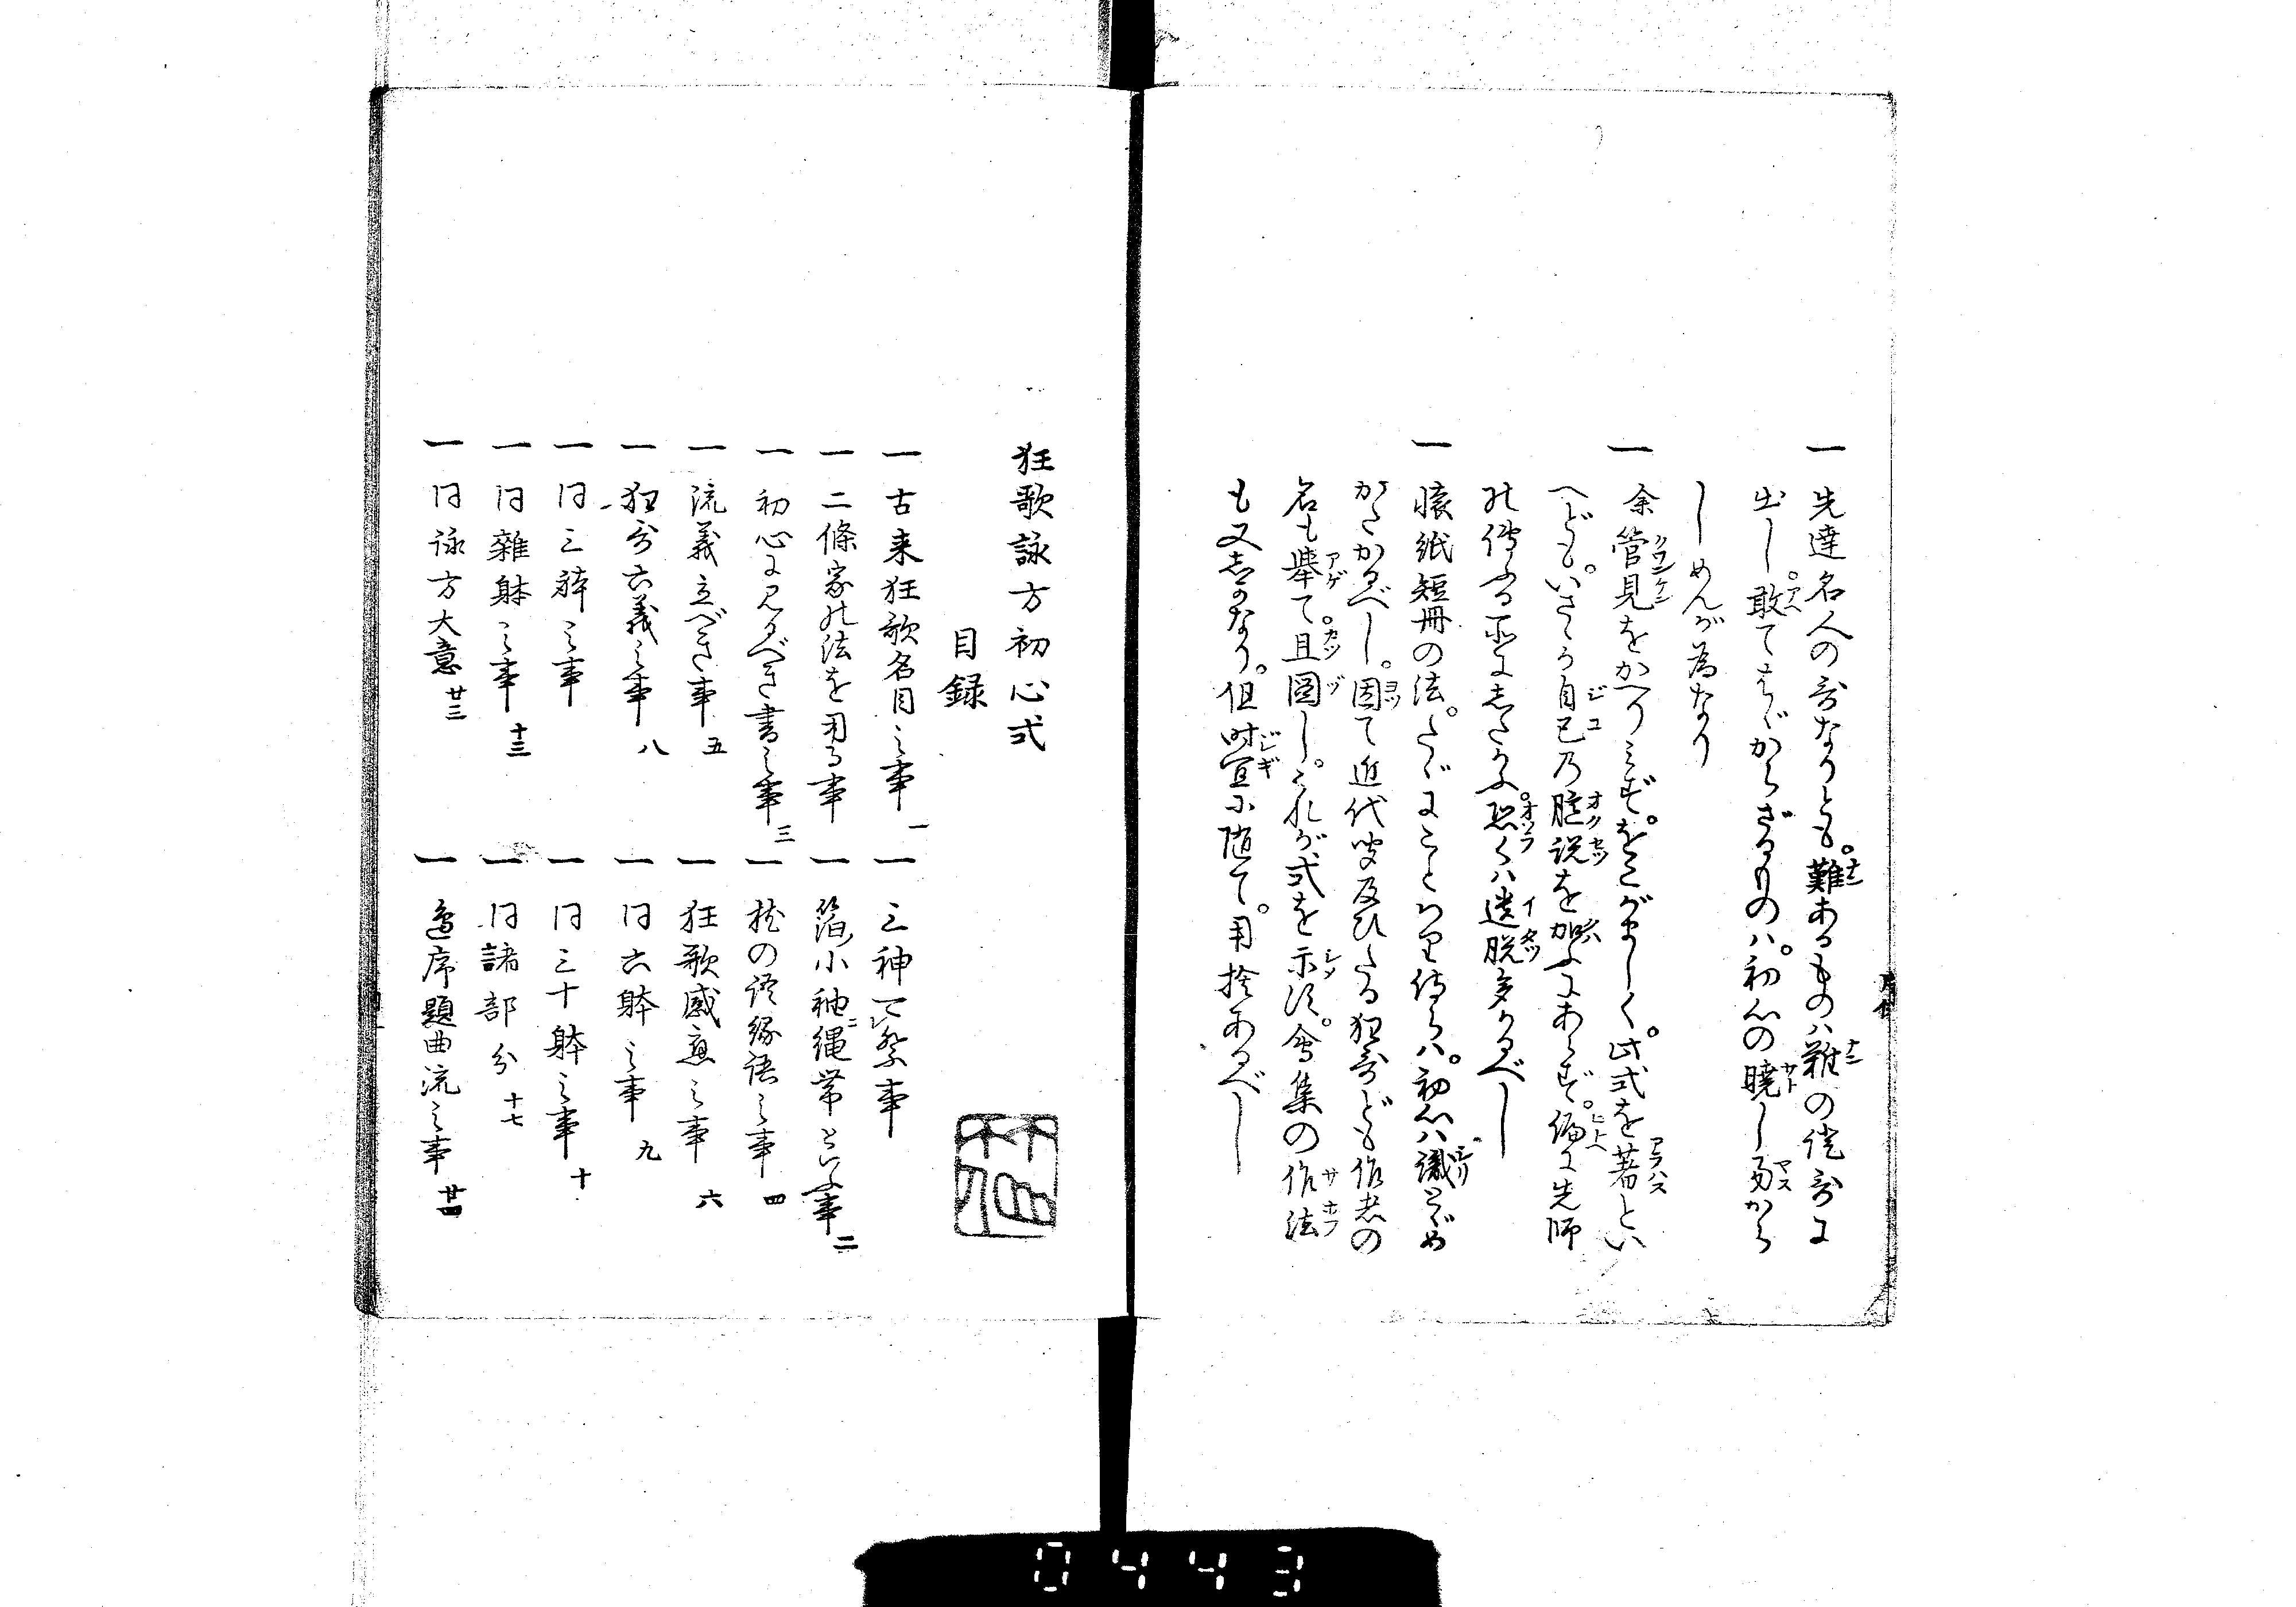 一 先達名人の哥なりとも。難あるものハ難の証哥に
出し。敢てはゞからざるものハ。初心の暁し易から
しめんが為なり
一 余管見をかへりみず。をこがましく。此式を著といへ
へども。いさゝか自己乃臆説を加ふにあらず。偏に先師
の傳ふる所にしたがふ。恐くハ遺脱多かるべし
一 懐紙短冊の法。たゞにことわり侍らハ。初心ハ識とゞめ
がたかるべし。因て近代聞及ひたる狂哥ども作者の
名も挙て。且図し。これが式を示す。會集の作法
も又しかなり。但時宜に随て。用捨あるべし
狂歌詠方初心式
目録
一 古来狂歌名目之事 一
一 三神可祭事
一 二條家の法を用る事
一 箔小袖ニ縄帯といふ事 二
一 初心に見るべき書之事 三
一 枕の詞縁語之事 四
一 流義立べき事 五
一 狂歌感應之事 六
一 狂哥六義之事 八
一 同六躰之事 九
一 同三躰之事
一 同三十躰之事 十
一 同雑躰之事 十三
一 同諸部分 十七
一 同詠方大意 廿三
一 邊序題曲流之事 廿四
0443